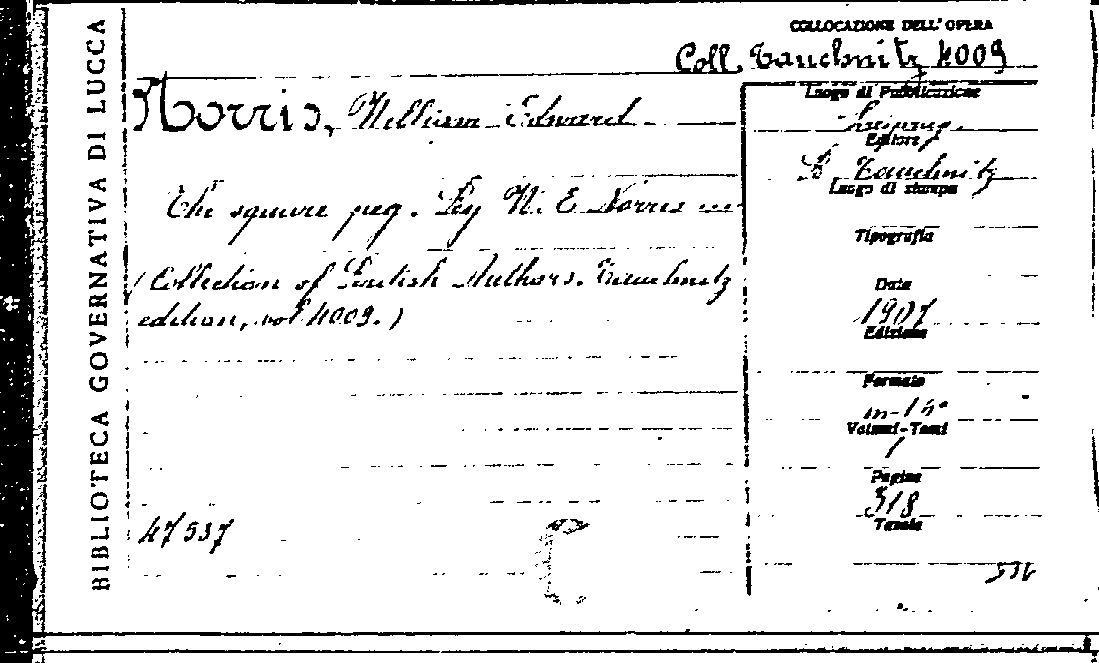 BIBLIOTECA GOVERNATIVA DI LUCCA
COLLOCAZIONE DELL'OPERA
Coll. Tauchnitz 4009
Norris, William Edward
The square peg. By W. E. Norris
(Collection of British Authors. Tauchnitz
edition, vol 4009.)
47537
C
Luogo di Pubblicazione
Leipzig
Editore
B. Tauchnitz
Luogo di stampa
Tipografia
Data
1907
Edizione
Formato
in-16°
Volumi-Tomi
1
Pagine
318
Tavole